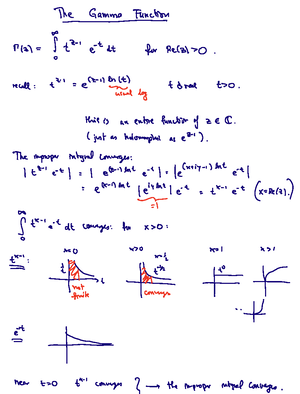 The Gamma Function
Γ(z) = ∫₀^∞ t^{z-1} e^{-t} dt for Re(z) > 0.
recall: t^{z-1} = e^{(z-1) ln(t)} t real t > 0.
usual log
this is an entire function of z ∈ ℂ.
(just as holomorphic as e^{z-1}).
The improper integral converges:
| t^{z-1} e^{-t} | = | e^{(z-1) ln t} e^{-t} | = | e^{(x+iy-1) ln t} e^{-t} |
= e^{(x-1) ln t} | e^{iy ln t} | e^{-t} = t^{x-1} e^{-t} (x = Re(z).)
=1
∫₀^∞ t^{x-1} e^{-t} dt converges: for x > 0:
t^{x-1}: x=0 x>0 x=1 x>1
1/t t not finite x=½ t^{-½} converges t^0
...
e^{-t}
near t=0 t^{x-1} converges } → the improper integral converges.